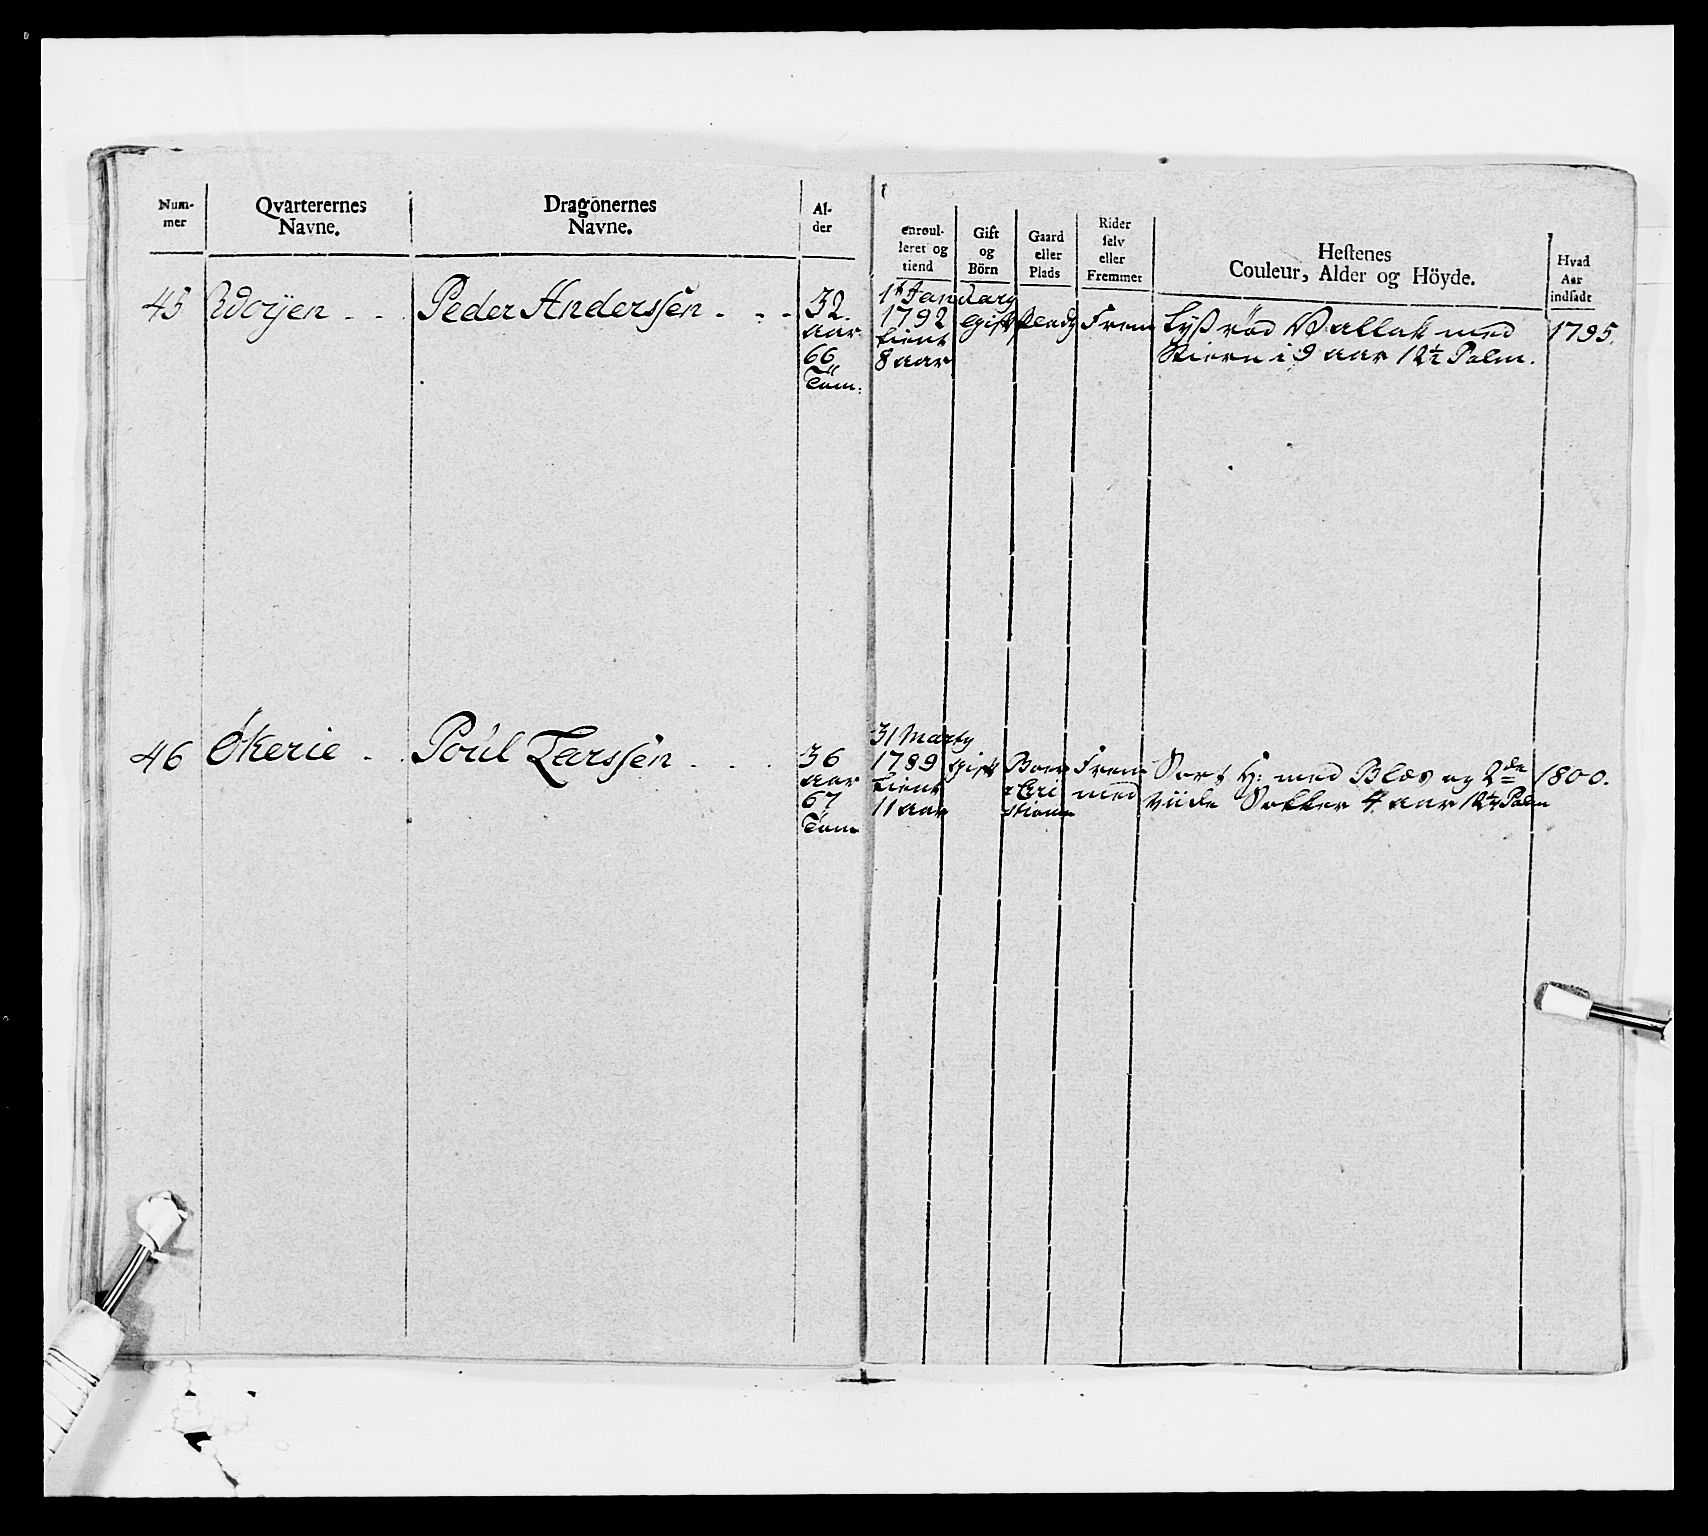 Num-
mer
Qvarterernes
Navne.
Dragonernes
Navne.
Al-
der
enroul-
leret og
tiend
Gift
og
Börn
Gaard
eller
Plads
Rider
selv
eller
Fremmet
Hestenes
Couleur, Alder og Höyde.
Hvad
Aar
indsadt
45
Peder Anderssen
32.
aar
66
Tom:
1st January
1792
tient
8 aar
Gift
Plads
Frem
Lyß rød Vallak med
Stiern i 9 aar 12½ Palm.
1795.
46 Økerie
Poül Larssen
36
aar
67
Tom
31 Marty
1789
tient
11 aar
Gift
Frem
med
Sort H: med Blös og 2de
Viide Sokker 4 aar 12½ Palm
1800.